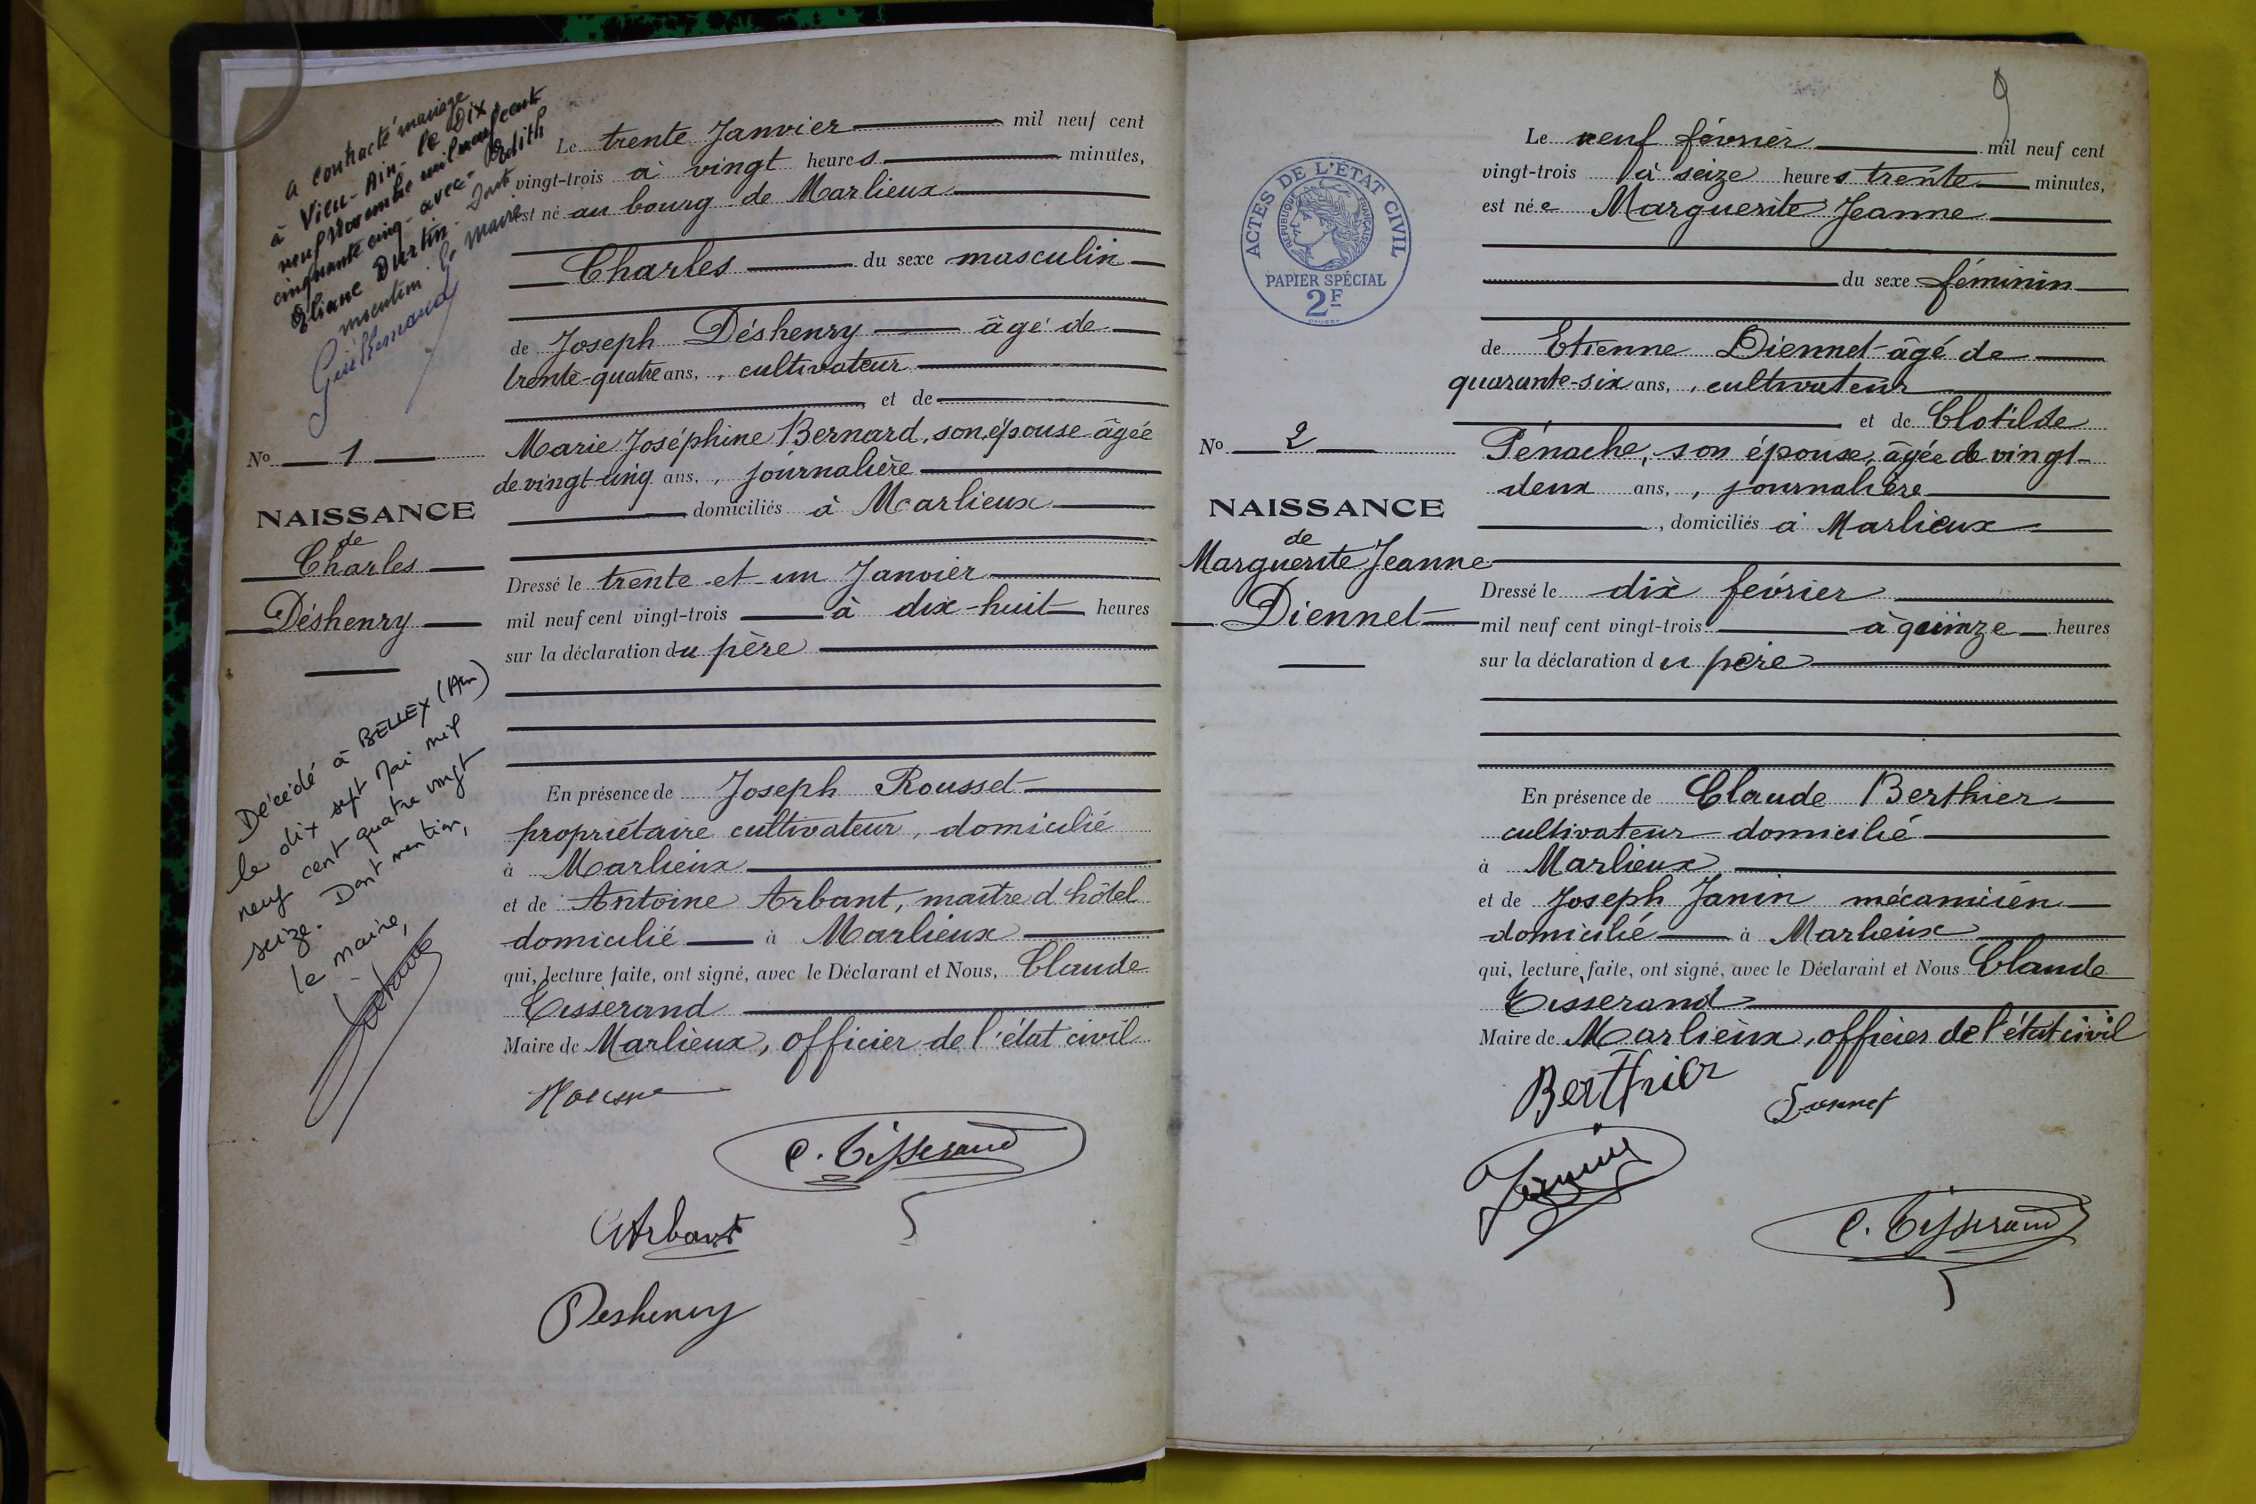 a contracté mariage
à Vieu - Ain - le Dix
neuf Novembre mil neuf cent
cinquante cinq - avec - Edith
Eliane Durtin - Dont
mention le maire
Guillemaud
Le trente Janvier mil neuf cent
vingt-trois à vingt heures minutes,
est né au bourg de Marlieux
Charles du sexe masculin
de Joseph Déshenry âgé de
trente-quatre ans, , cultivateur
et de
Marie Joséphine Bernard, son épouse âgée
de vingt cinq ans, , journalière
domiciliés à Marlieux
Dressé le trente et un Janvier
mil neuf cent vingt-trois à dix-huit heures
sur la déclaration du père
En présence de Joseph Rousset
propriétaire cultivateur, domicilié
à Marlieux
et de Antoine Arbant, maître d'hôtel
domicilié à Marlieux
qui, lecture faite, ont signé, avec le Déclarant et Nous, Claude
Tisserand
Maire de Marlieux, officier de l'état civil
C. Tisserand
Arbant
Deshenry
No 1
NAISSANCE
de
Charles
Déshenry
Décédé à BELLEY (Ain)
le dix sept Mai mil
neuf cent quatre vingt
seize. Dont mention,
le maire,
9
ACTES DE L'ÉTAT CIVIL
RÉPUBLIQUE FRANÇAISE
PAPIER SPÉCIAL
2F
Le neuf février mil neuf cent
vingt-trois à seize heures trente minutes,
est née Marguerite Jeanne
du sexe féminin
de Etienne Diennet âgé de
quarante-six ans, , cultivateur
et de Clotilde
Pénache, son épouse, âgée de vingt-
deux ans, , journalière
, domiciliés à Marlieux
Dressé le dix février
mil neuf cent vingt-trois à quinze heures
sur la déclaration du père
En présence de Claude Berthier
cultivateur domicilié
à Marlieux
et de Joseph Janin mécanicien
domicilié à Marlieux
qui, lecture faite, ont signé, avec le Déclarant et Nous Claude
Tisserand
Maire de Marlieux, officier de l'état civil
Berthier
Janin
C. Tisserand
No 2
NAISSANCE
de
Marguerite Jeanne
Diennet